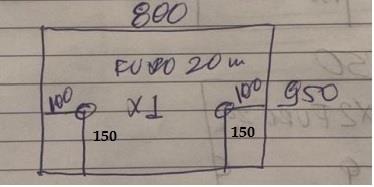 800
FURO 20 m
100 X1 100 950
150 150